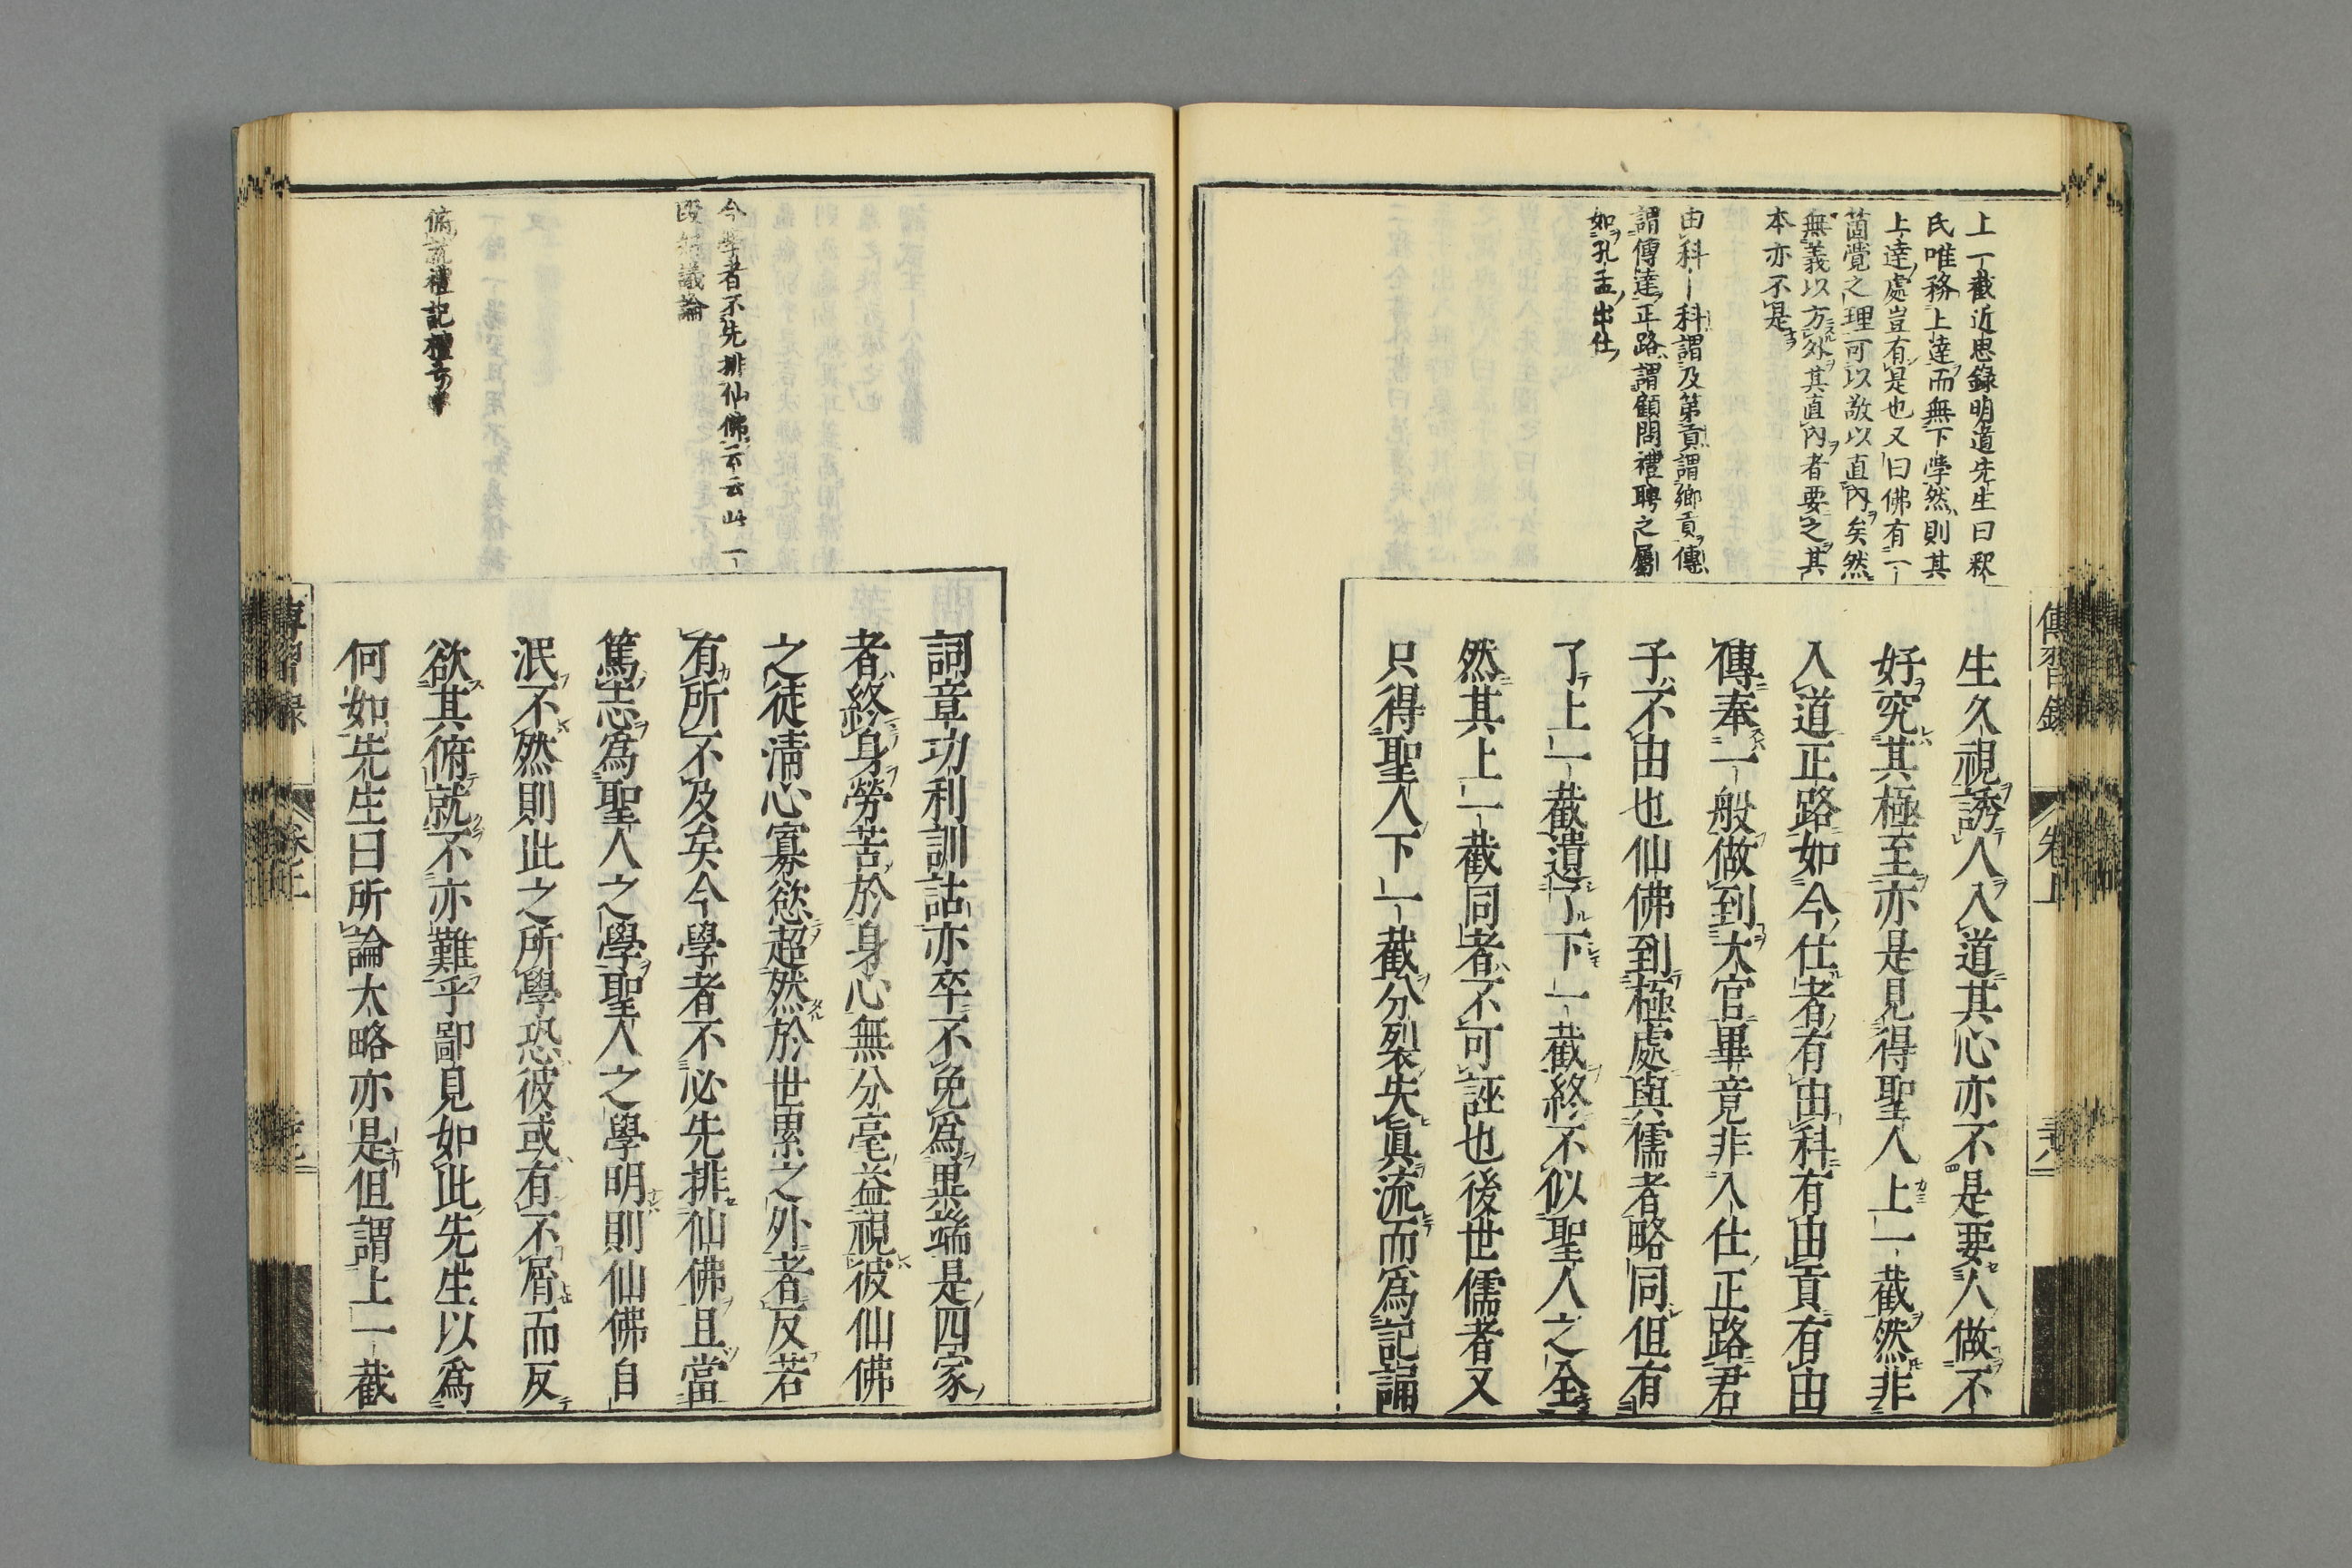 上一截近思錄明道先生曰釈
氏唯務上達而無下学然則其
上達處豈有是也又曰佛有一
箇覺之理可以敬以直內矣然
無義以方外其直內者要之其
本亦不是
由科一科謂及第貢謂鄉貢傳
謂傳達正路謂顧問禮聘之屬
如孔孟出仕
生久視誘人入道其心亦不是要人做不
好究其極至亦是見得聖人上一截然非
入道正路如今仕者有由科有由貢有由
傳奉一般做到大官畢竟非入仕正路君
子不由也仙佛到極處與儒者略同但有
了上一截遺了下一截終不似聖人之全
然其上一截同者不可誣也後世儒者又
只得聖人下一截分裂失眞流而爲記誦
傳習錄 卷上
今学者不先排仙佛云云此一
段 議論
俯就禮記檀弓
詞章功利訓詁亦卒不免爲異端是四家
者終身勞苦於身心無分毫益視彼仙佛
之徒淸心寡慾超然於世累之外者反若
有所不及矣今學者不必先排仙佛且當
篤志爲聖人之學聖人之學明則仙佛自
泯不然則此之所學恐彼或有不屑而反
欲其俯就不亦難乎鄙見如此先生以爲
何如先生曰所論大略亦是但謂上一截
傳習錄 卷上